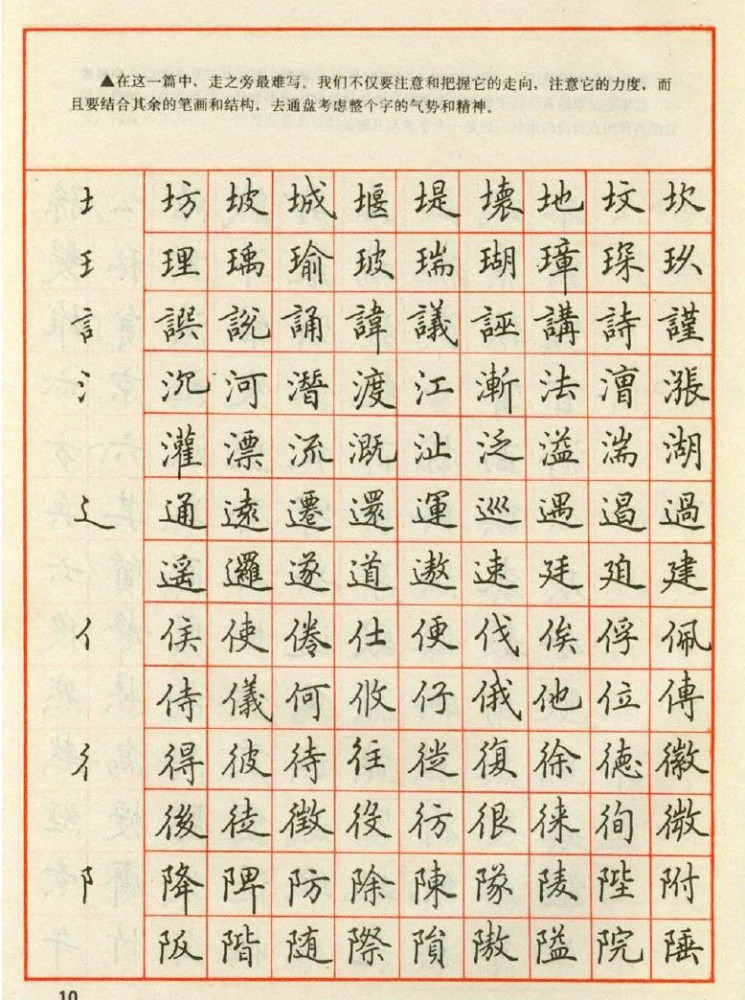 ▲在这一篇中，走之旁最难写。我们不仅要注意和把握它的走向，注意它的力度，而
且要结合其余的笔画和结构，去通盘考虑整个字的气势和精神。
土 坊 坡 城 堰 堤 壞 地 坟 坎
王 理 瑀 瑜 玻 瑞 瑚 璋 琛 玖
訁 譔 説 誦 諱 議 誣 講 詩 謹
氵 沉 河 潛 渡 江 漸 法 漕 漲
灌 漂 流 溉 沚 泛 溢 湍 湖
辶 通 遠 遷 還 運 巡 遇 遏 過
遥 邏 遂 道 遨 速 廷 廸 建
亻 侯 使 倦 仕 便 伐 俟 俘 佩
侍 儀 何 攸 仔 俄 他 位 傳
彳 得 彼 待 往 從 復 徐 德 徽
後 徒 徵 役 彷 很 徠 徇 微
阝 降 陴 防 除 陳 隊 陵 陛 附
阪 階 随 際 隕 隞 隘 院 陲
10